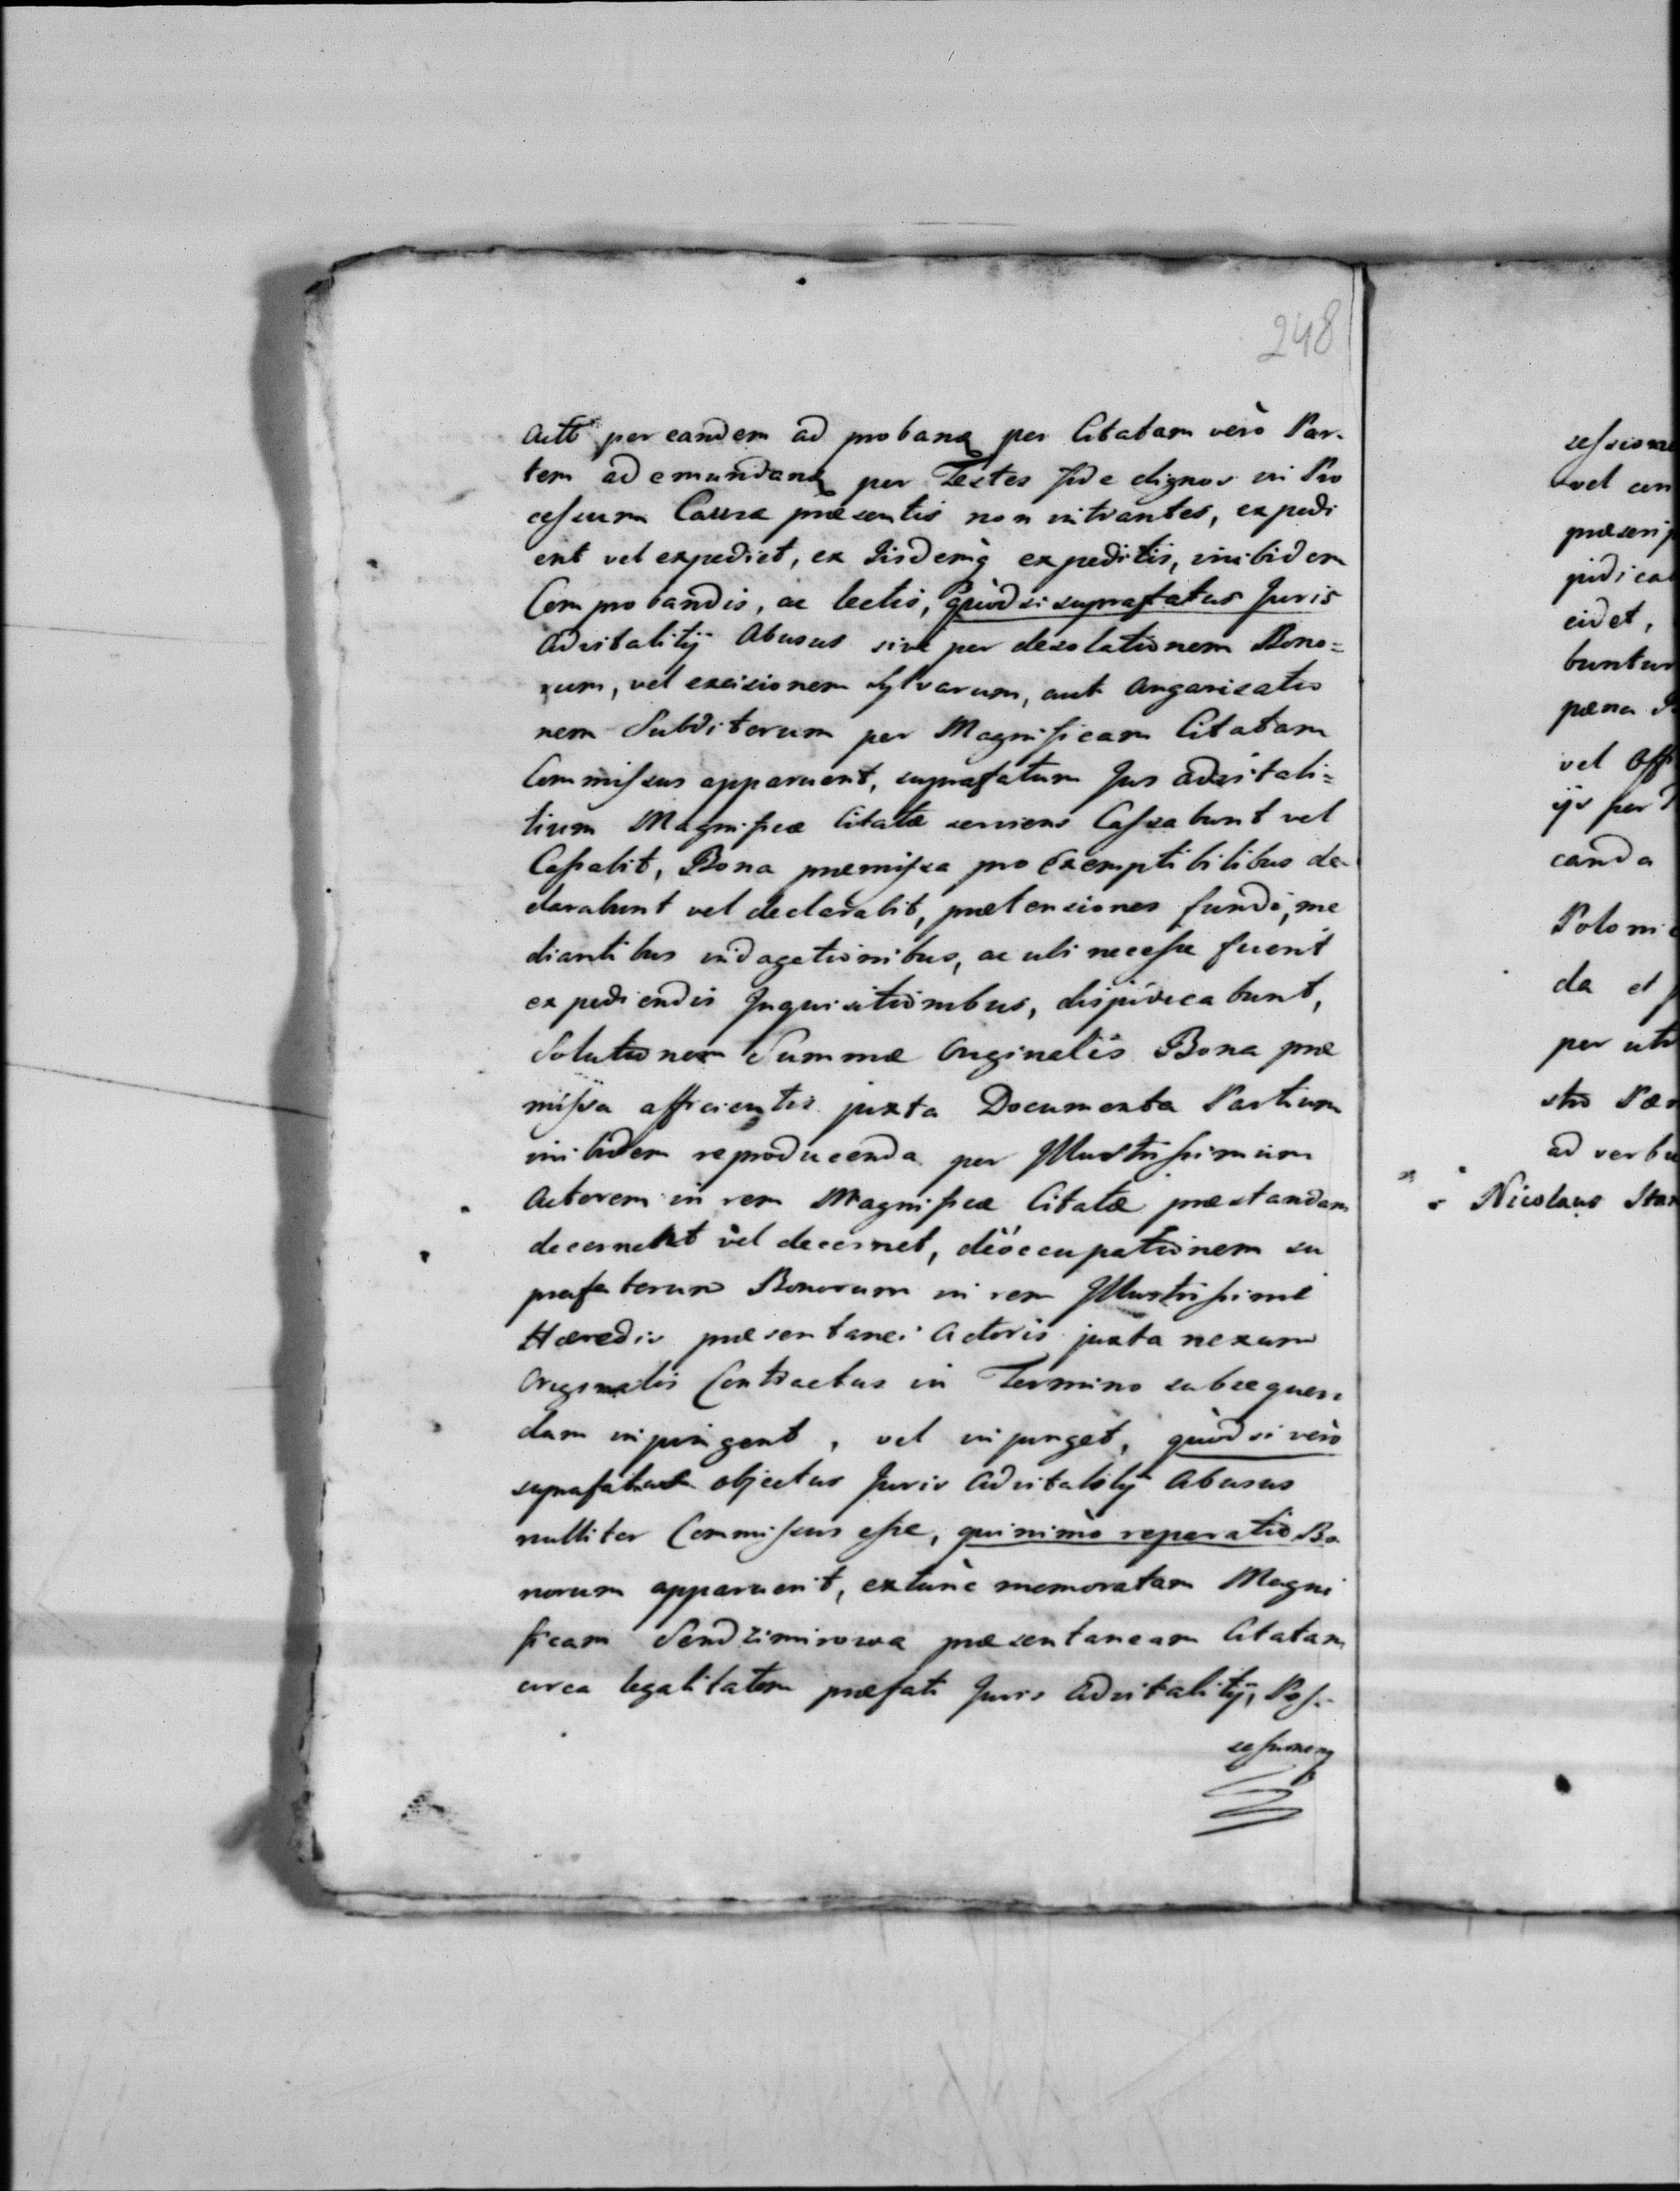 248
Actt per eandem ad probanq per Citatam verò Par-
tem ad emundanq per Testes fide dignos in Pro
cessum Causæ præsentis non intrantes, expedi
ent vel expediet, ex Iisdemq expeditis, inibidem
Comprobandis, ac lectis, quòd si suprafatus Juris
Advitalitij Abusus sive per desolationem Bono=
rum, vel excisionem sylvarum, aut Angarisatio
nem Subditorum per Magnificam Citatam
Commissus apparuerit, suprafatum Jus advitali=
tium Magnificæ Citatæ serviens Cassabunt vel
Cassabit, Bona præmissa pro Exemptibilibus de
clarabunt vel declarabit, prætensiones fundi, me
diantibus indagationibus, ac ubi necesse fuerit
expediendis Inquisitionibus, disjudicabunt,
Solutionem Summæ Originalis Bona præ
missa afficientis juxta Documenta Partium
inibidem reproducenda per Illustrissimum
Actorem in rem Magnificæ Citatæ præstandam
decernent vel decernet, deoccupationem su
prafatorum Bonorum in rem Illustrissimi
Hæredis præsentanei Actoris juxta nexum
Originalis Contractus in Termino subsequen
dam injungent, vel injunget, quòd si verò
suprafatus objectus Juris Advitalitij Abusus
nulliter Commissus esse, quinimò reparatio Bo
norum apparuerit, extunc memoratam Magni
ficam Sendzimirowa præsentaneam Citatam
circa legalitatem præfati Juris Advitalitij, Pos-
sessionem
sessione
vel con
præscrip
judica
cidet,
buntur
pæna
vel Offi
ijs per
canda
Poloni
da et
per utr
stro
ad verbu
Nicolaus Stan